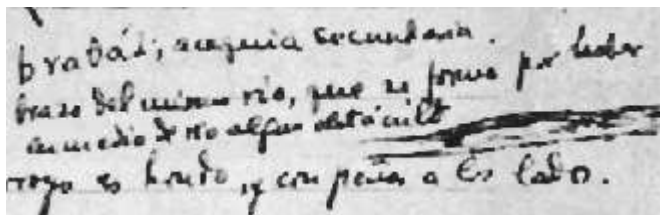 brazál; acequia secundaria.
brazo del mismo río, que se forma por haber
en medio de río algun obstácul
royo es hondo, y con peñas a los lados.